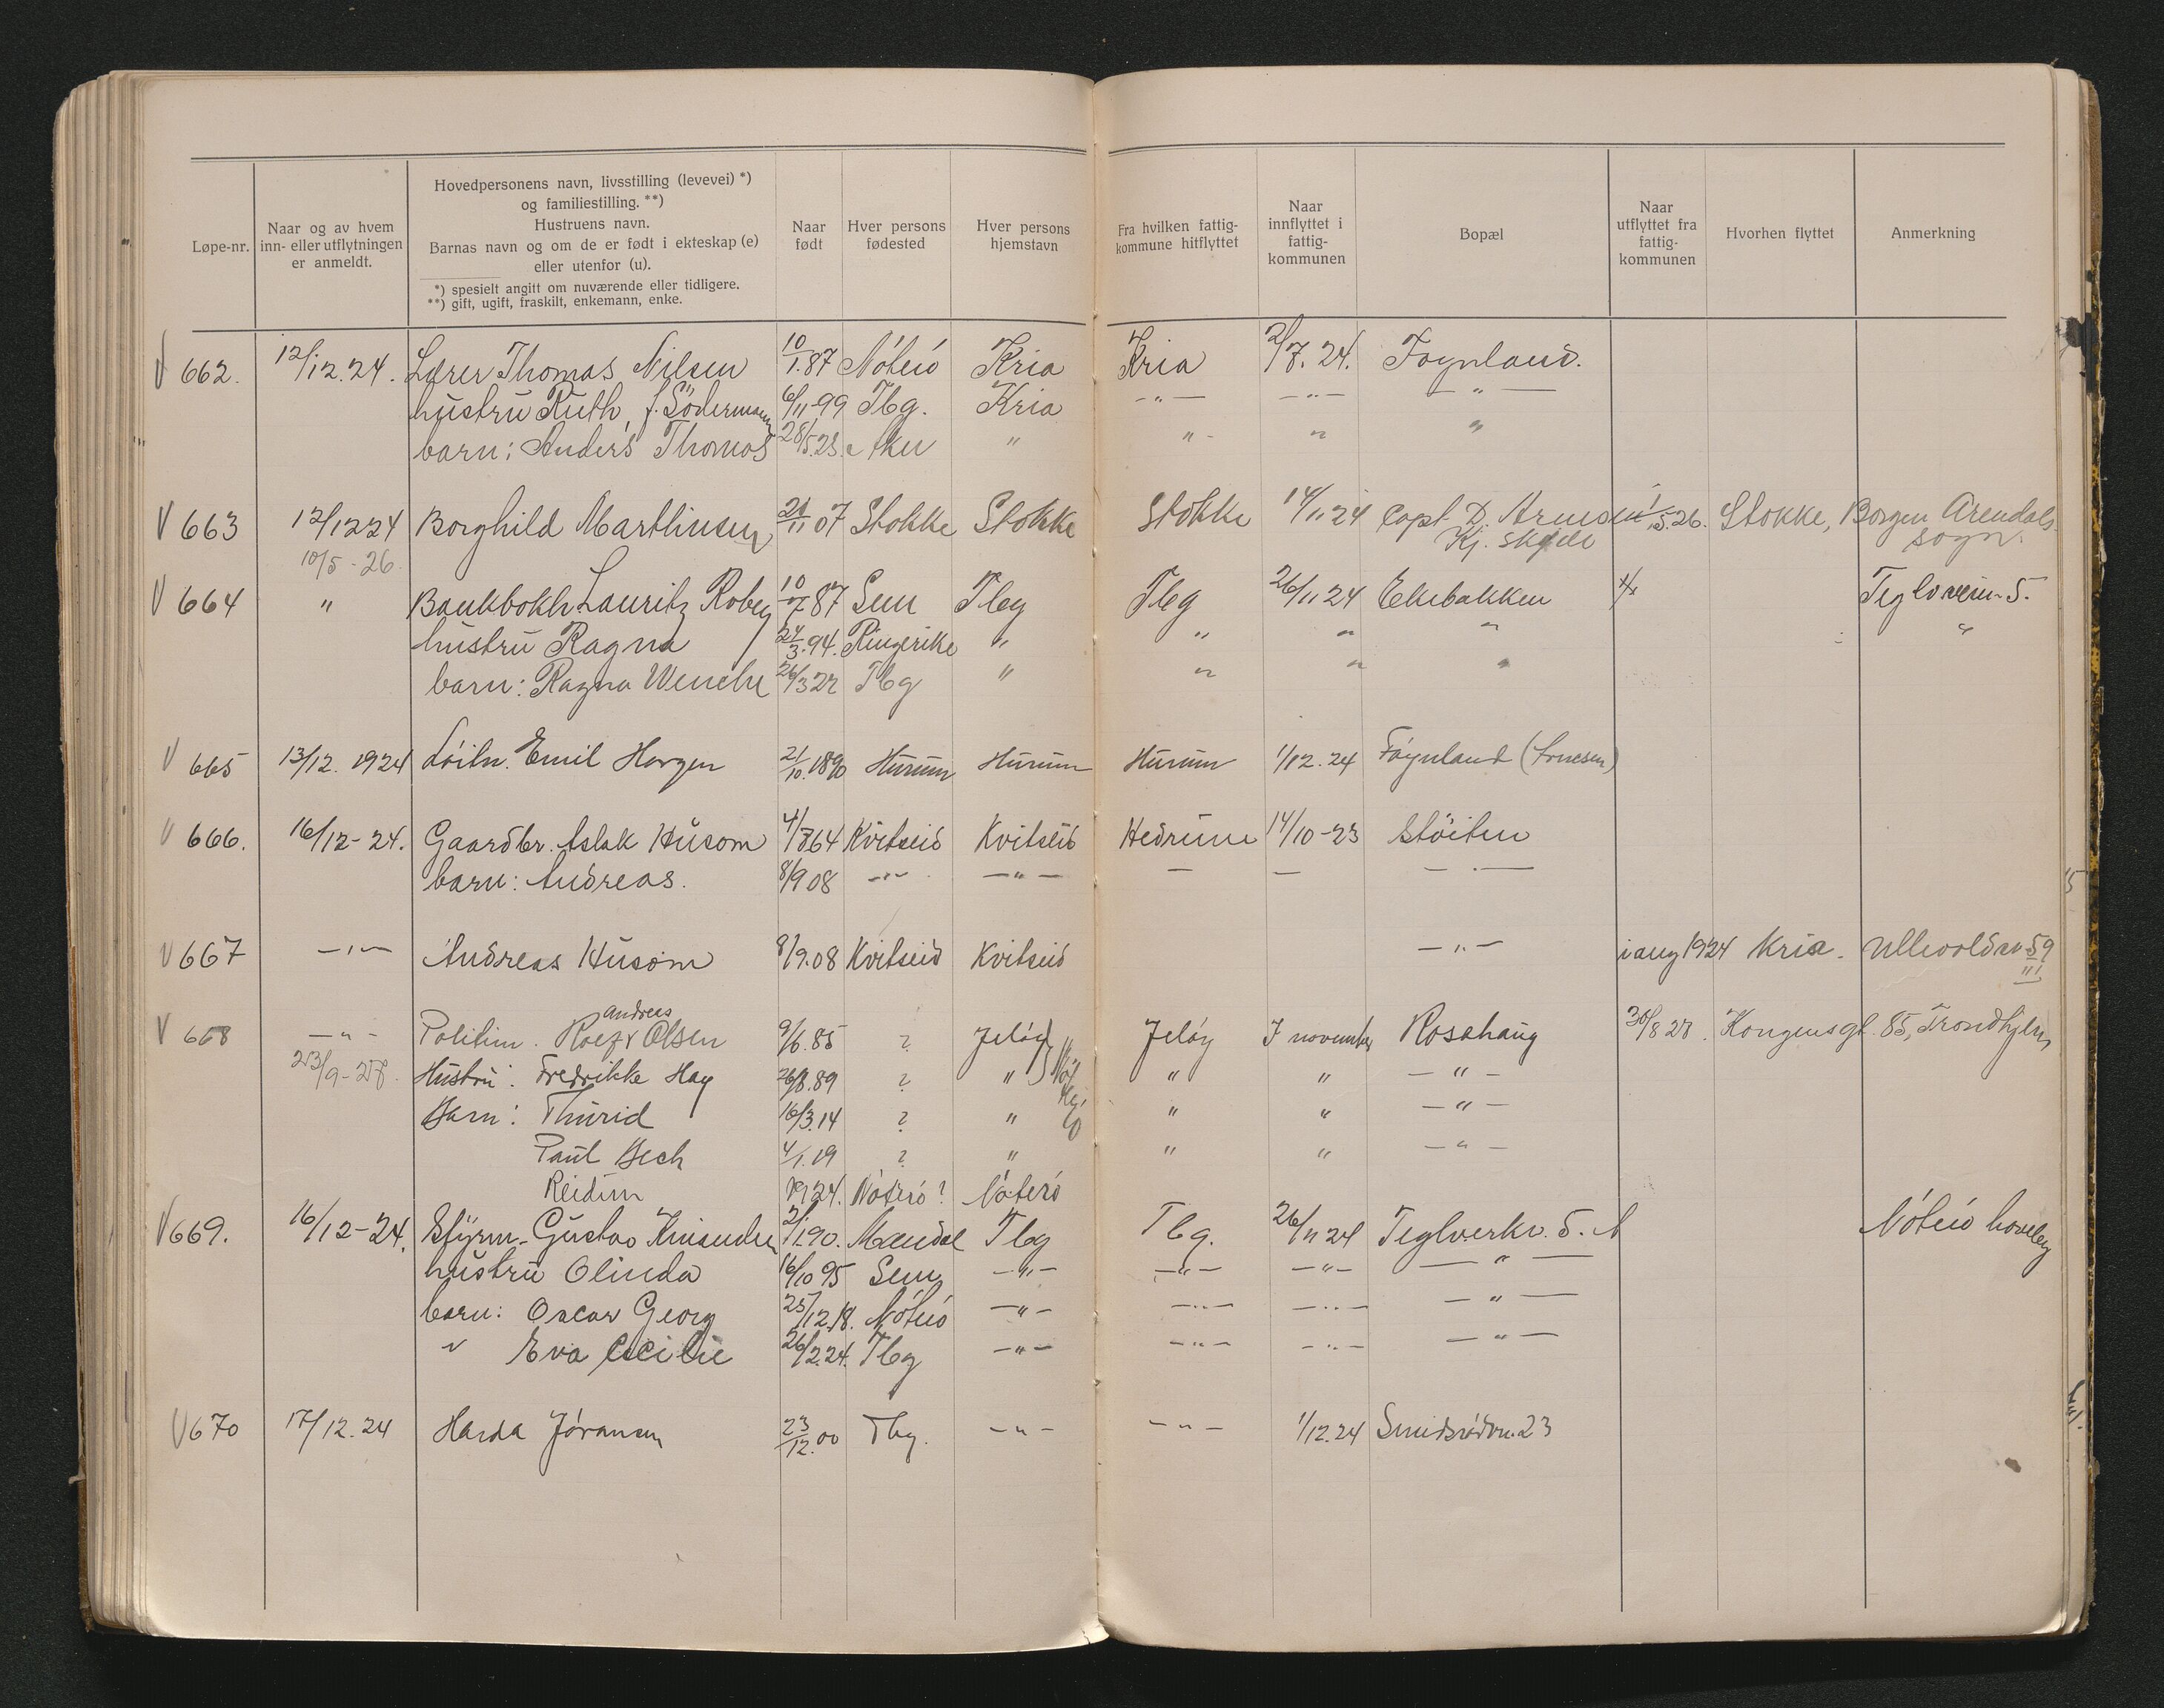 Løpe-nr.
Naar og av hvem
inn- eller utflytningen
er anmeldt.
Hovedpersonens navn, livsstilling (levevei) *)
og familiestilling. **)
Hustruens navn.
Barnas navn og om de er født i ekteskap (e)
eller utenfor (u).
*) spesielt angitt om nuværende eller tidligere.
**) gift, ugift, fraskilt, enkemann, enke.
Naar
født
Hver persons
fødested
Hver persons
hjemstavn
Fra hvilken fattig-
kommune hitflyttet
Naar
innflyttet i
fattig-
kommunen
Bopæl
Naar
utflyttet fra
fattig-
kommunen
Hvorhen flyttet
Anmerkning
V 662. 12/12.24. Lærer Thomas Nilsen 10/1.87 Nöterö Kria Kria 2/7.24. Föynland.
hustru Ruth, f. Södermann 6/11-99 Tbg. Kria -"- -"- -"-
barn: Anders Thomas 28/5.23. Aker " " " "
V 663 12/1224 Borghild Marthinsen 21/11 07 Stokke Stokke Stokke 14/11 24 Capt. D. Arnesen 1/5.26. Stokke, Borgen Arendals
10/5-26. Kj. sogn.
V 664 " Bankbokh Lauritz Roberg 10/7 87 Sem Tbg Tbg 26/11 24 Ekebakken Teglverkv. 5.
hustru Ragna 24/3.94. Ringerike " " " " "
barn: Ragna Wenche 26/3 22 Tbg " " " "
V 665 13/12. 1924 Löitn. Emil Horgen 21/10.1890 Hurum Hurum Hurum 1/12.24 Föynland (Arnesen)
V 666. 16/12-24. Gaardbr. Aslak Husom 4/7 64 Kvitseid Kvitseid Hedrum 14/10-23 Stöiten
barn: Andreas. 8/9 08 -"- -"- - - - . -
V 667 -"- Andreas Husom 8/9.08 Kvitseid Kvitseid -"- i aug 1924 Kria. Ullevoldsv 59 III
V 668 -"- Politim. Roefr Andreas Olsen 9/6.85 ? Jelöy Jelöy I november Rosahaug 30/8 28. Kongensgt. 85, Trondhjem
23/9-28. Hustru: Fredrikke Hay 26/8.89 ? " " " -"-
Barn: Thurid 16/3.14 ? " " " -"-
Paul Bech 4/1.19 ? " " " -"-
Reidun 1924. Nöterö? Nöterö
V 669. 16/12-24. Styrm. Gustav 2/1.90. Mandal Tbg Tbg. 26/11 24 Teglverkv. 5. Nöterö
hustru Olinda 16/10 95 Sem -"- -"- -"- -"-
barn: Oscar Georg 25/12.18. Nöterö -"- -"- -"- -"-
" Eva Cecilie 26/2.24. Tbg -"- -"- -"- -"-
V 670 17/12.24 Harda Jöransen 23/12.00 Tbg. -"- -"- 1/12.24 Smidsrödvn. 23